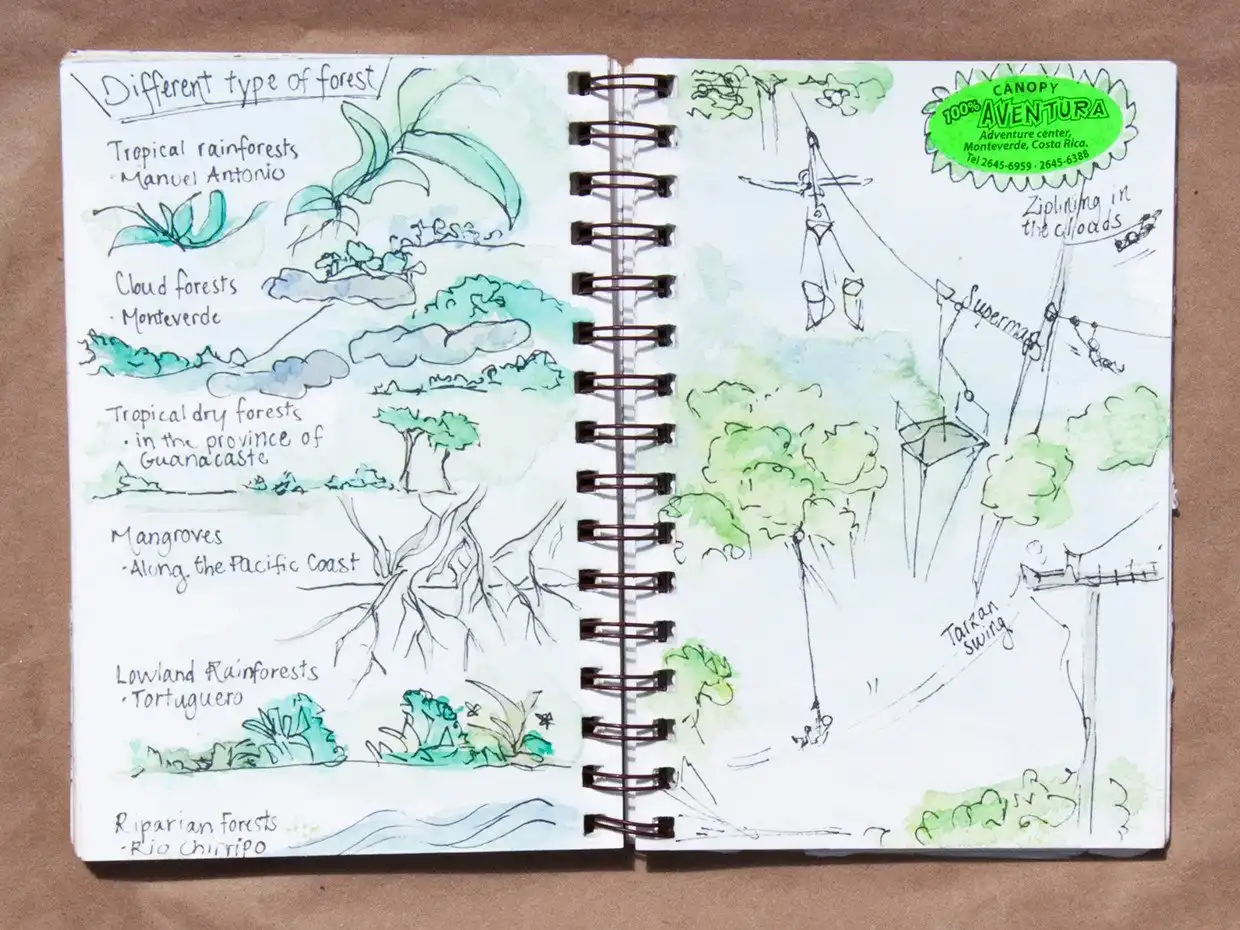 Different type of forest
Tropical rainforests
· Manuel Antonio
Cloud forests
· Monteverde
Tropical dry forests
· in the province of
Guanacaste
Mangroves
· Along the Pacific Coast
Lowland Rainforests
· Tortuguero
Riparian Forests
· Rio Chirripo
CANOPY
100% AVENTURA
Adventure center,
Monteverde, Costa Rica.
Tel 2645-6959 · 2645-6388
Ziplining in
the clouds
Superman
Tarzan
swing